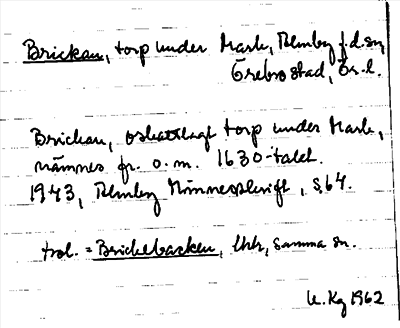 Brickan, torp under Mark, Almby f.d. sn
Örebro stad, Ör. l.
Brickan, oskattlagt torp under Mark,
nämnes fr. o. m. 1630-talet.
1943, Almby Minnesskrift, s. 64.
trol. = Brickebacken, lht, samma sn.
1962